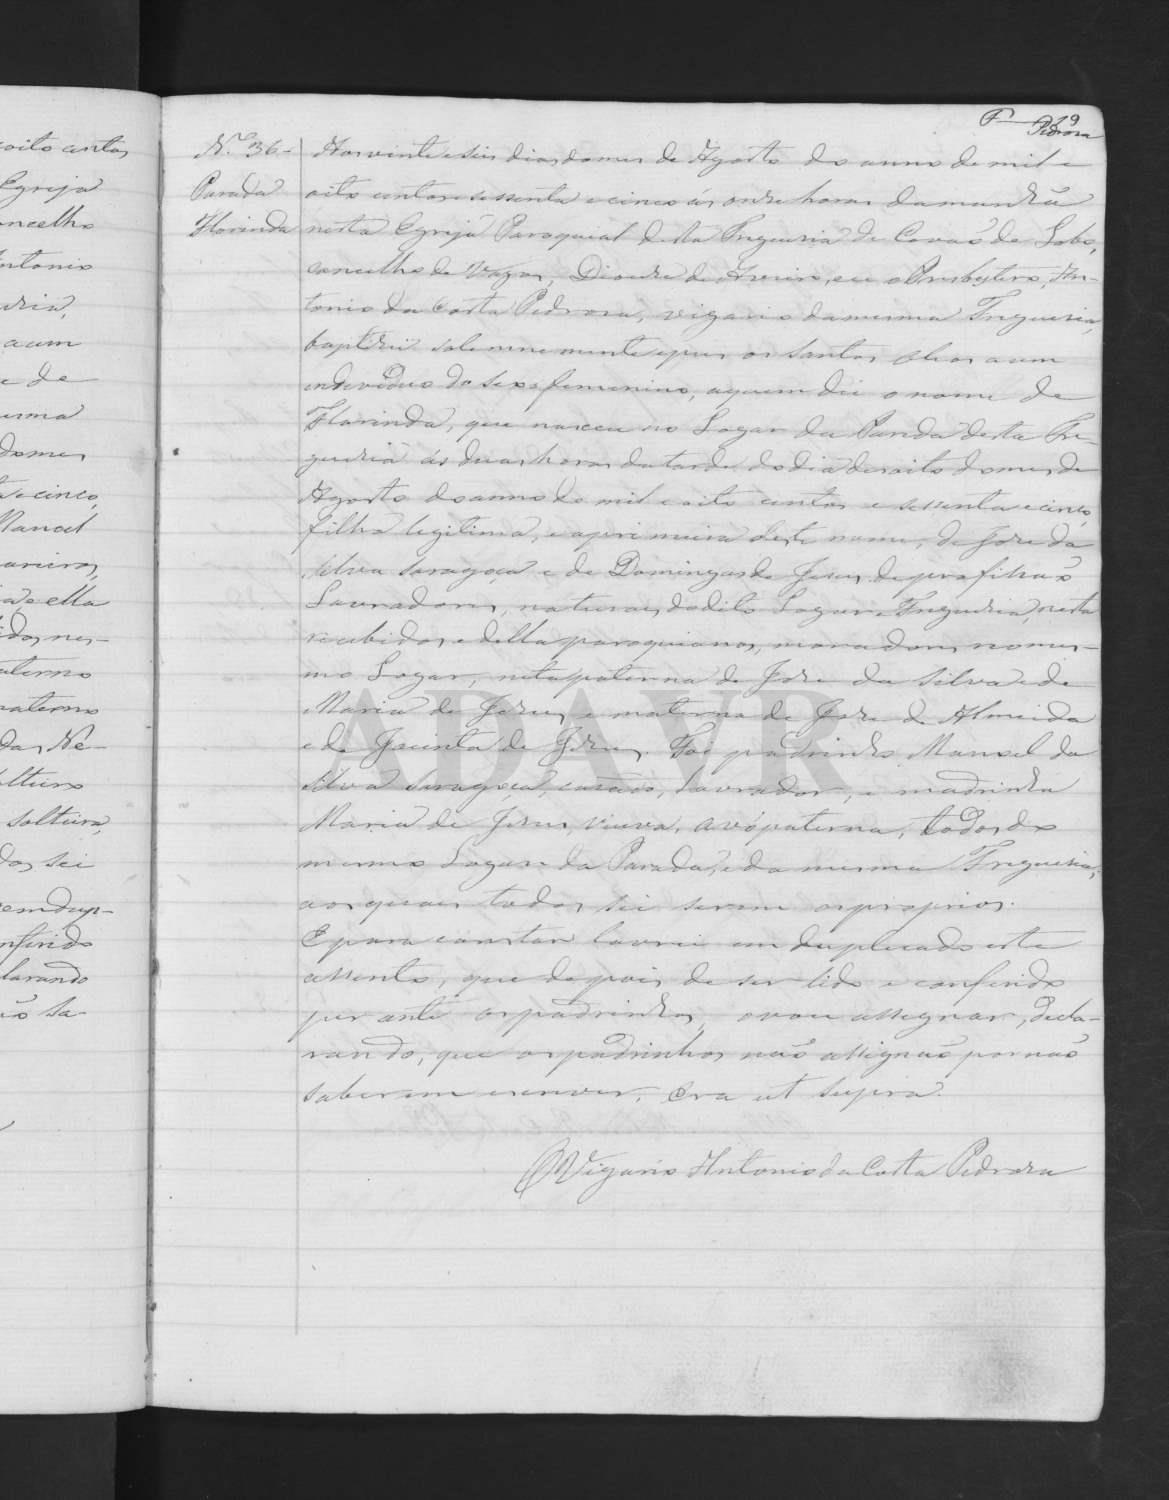 19
Pedrosa
coito centos
Egreja
oncelho
ntonio
uria,
a um
e de
esma
do mes
ta e cinco,
Manoel
e ella
idos, nes-
aterno
aterno
das Ne-
olteiro
solteira,
dos sei
em dup-
nferido
larando
ão sa-
N.º 36-
Parada
Florinda
Aos vinte e seis dias do mes de Agosto do anno de mil e
oito centos e sessenta e cinco ás onze horas da manhã
nesta Egreja Paroquial desta Freguesia de Covaõ do Lobo,
concelho de Vagos, Diocese de Aveiro, eu o Presbytero, An-
tonio da Costa Pedrosa, vigario da mesma Freguesia
baptizei solemnemente e pus os Santos Oleos a um
individuo do sexo femenino, a quem dei o nome de
Florinda, que nasceu no Logar da Parada desta Fre-
guesia ás duas horas da tarde do dia desoito do mes de
Agosto do anno de mil e oito centos e sessenta e cinco,
filha legitima, e a primeira deste nome, de Jose da
Silva Saragoça e de Domingas de Jesus de profissaõ
Lavradores, naturaes do dito Logar e Freguesia, nesta
recebidos e della paroquianos, moradores no mes-
mo Logar, neta paterna de Jose da Silva e de
Maria de Jesus, e materna de Jose de Almeida
e de Jacinta de Jesus. Foi padrinho Manoel da
Silva Saragoça, casado, Lavrador, e madrinha
Maria de Jesus, viuva, avó paterna, todos do
mesmo Logar da Parada, e da mesma Freguesia,
aos quaes todos sei serem os proprios.
E para constar lavrei em duplicado este
assento, que depois de ser lido e conferido
perante os padrinhos, o vou assignar, decla-
rando, que os padrinhos naõ assignaõ por naõ
saberem escrever. Era ut supra.
O Vigario Antonio da Costa Pedrosa
ADAVR